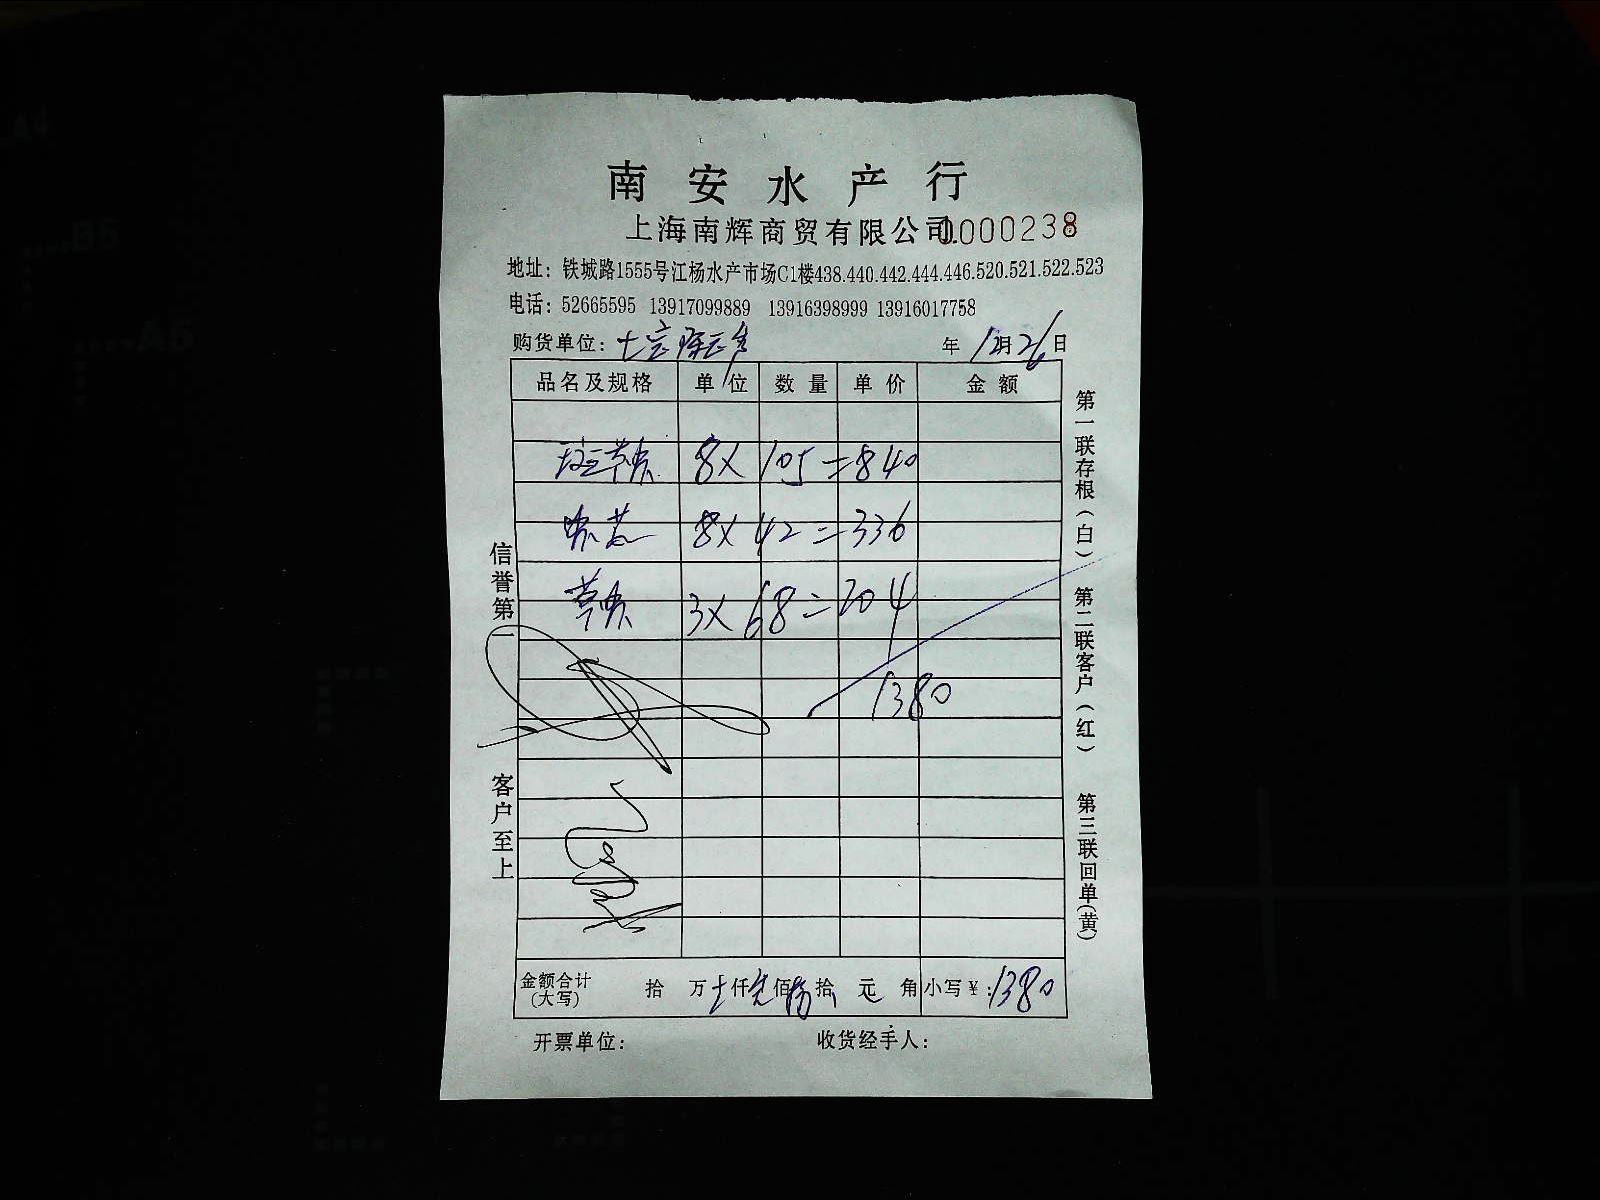 南安水产行
上海南辉商贸有限公司 0000238
地址：铁城路1555号江杨水产市场C1楼438.440.442.444.446.520.521.522.523
电话：52665595 13917099889 13916398999 13916017758
购货单位： 年 12月26日
品名及规格 单位 数量 单价 金额
8X 105=840
8X 42=336
草虾 3X 68=204
1380
金额合计(大写) 拾 万 仟 佰 拾 元 角 小写￥：1380
开票单位： 收货经手人：
信誉第一 客户至上
第一联存根(白) 第二联客户(红) 第三联回单(黄)